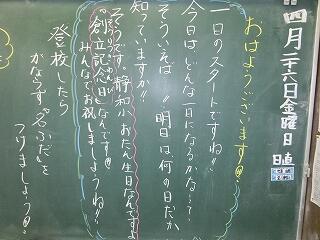 四月二十六日金曜日 日直
おはようございます
一日のスタートですね!!
今日は、どんな一日になるかな…?
そういえば!! 明日は、何の日だか
知っていますか!!
そうです。静和小おたん生日なんですよ
“創立記念日”なんです。
みんなでお祝しましょうね!!
登校したら
かならず“名ふだ”を
つけましょう。